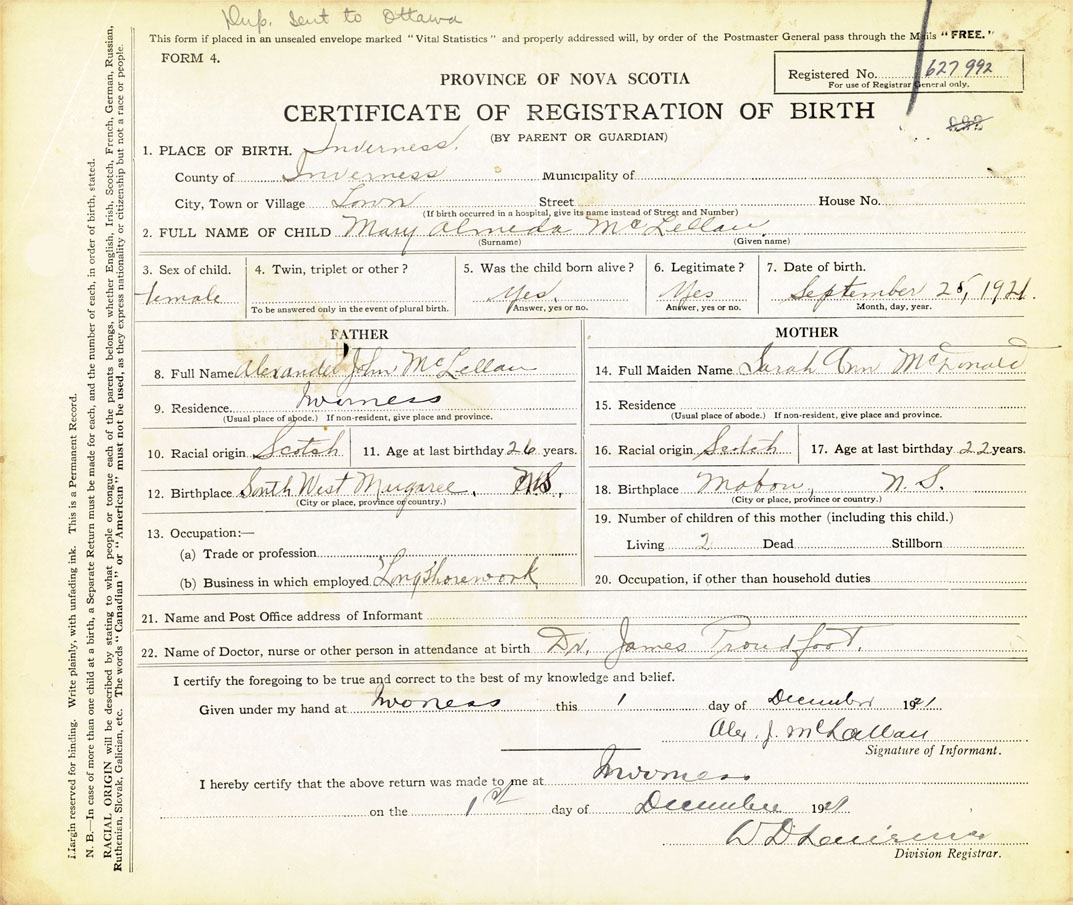 Dup. sent to Ottawa
This form if placed in an unsealed envelope marked "Vital Statistics" and properly addressed will, by order of the Postmaster General pass through the Mails "FREE."
FORM 4.
Registered No. 627992
For use of Registrar General only.
PROVINCE OF NOVA SCOTIA
CERTIFICATE OF REGISTRATION OF BIRTH
(BY PARENT OR GUARDIAN)
1. PLACE OF BIRTH. Inverness.
County of Inverness Municipality of
City, Town or Village Town Street House No.
(If birth occurred in a hospital, give its name instead of Street and Number)
2. FULL NAME OF CHILD Mary Almeda McLellan.
(Surname) (Given name)
3. Sex of child. female
4. Twin, triplet or other?
To be answered only in the event of plural birth.
5. Was the child born alive? Yes.
Answer, yes or no.
6. Legitimate? Yes
Answer, yes or no.
7. Date of birth.
September 25, 1921.
Month, day, year.
FATHER
8. Full Name Alexander John McLellan
9. Residence Inverness
(Usual place of abode.) If non-resident, give place and province.
10. Racial origin Scotch 11. Age at last birthday 26 years.
12. Birthplace South West Margaree, N.S.
(City or place, province or country.)
13. Occupation:—
(a) Trade or profession
(b) Business in which employed Longshorework
MOTHER
14. Full Maiden Name Sarah Ann McDonald
15. Residence
(Usual place of abode.) If non-resident, give place and province.
16. Racial origin Scotch 17. Age at last birthday 22 years.
18. Birthplace Mabou, N.S.
(City or place, province or country.)
19. Number of children of this mother (including this child.)
Living 2 Dead Stillborn
20. Occupation, if other than household duties
21. Name and Post Office address of Informant
22. Name of Doctor, nurse or other person in attendance at birth Dr. James Proudfoot.
I certify the foregoing to be true and correct to the best of my knowledge and belief.
Given under my hand at Inverness this 1 day of December 1921
Alex. J. McLellan
Signature of Informant.
I hereby certify that the above return was made to me at Inverness
on the 1st day of December 1921
W D
Division Registrar.
Margin reserved for binding. Write plainly, with unfading ink. This is a Permanent Record.
N. B.—In case of more than one child at a birth, a Separate Return must be made for each, and the number of each, in order of birth, stated.
RACIAL ORIGIN will be described by stating to what people or tongue each of the parents belongs, whether English, Irish, Scotch, French, German, Russian,
Ruthenian, Slovak, Galician, etc. The words "Canadian" or "American" must not be used, as they express nationality or citizenship but not a race or people.